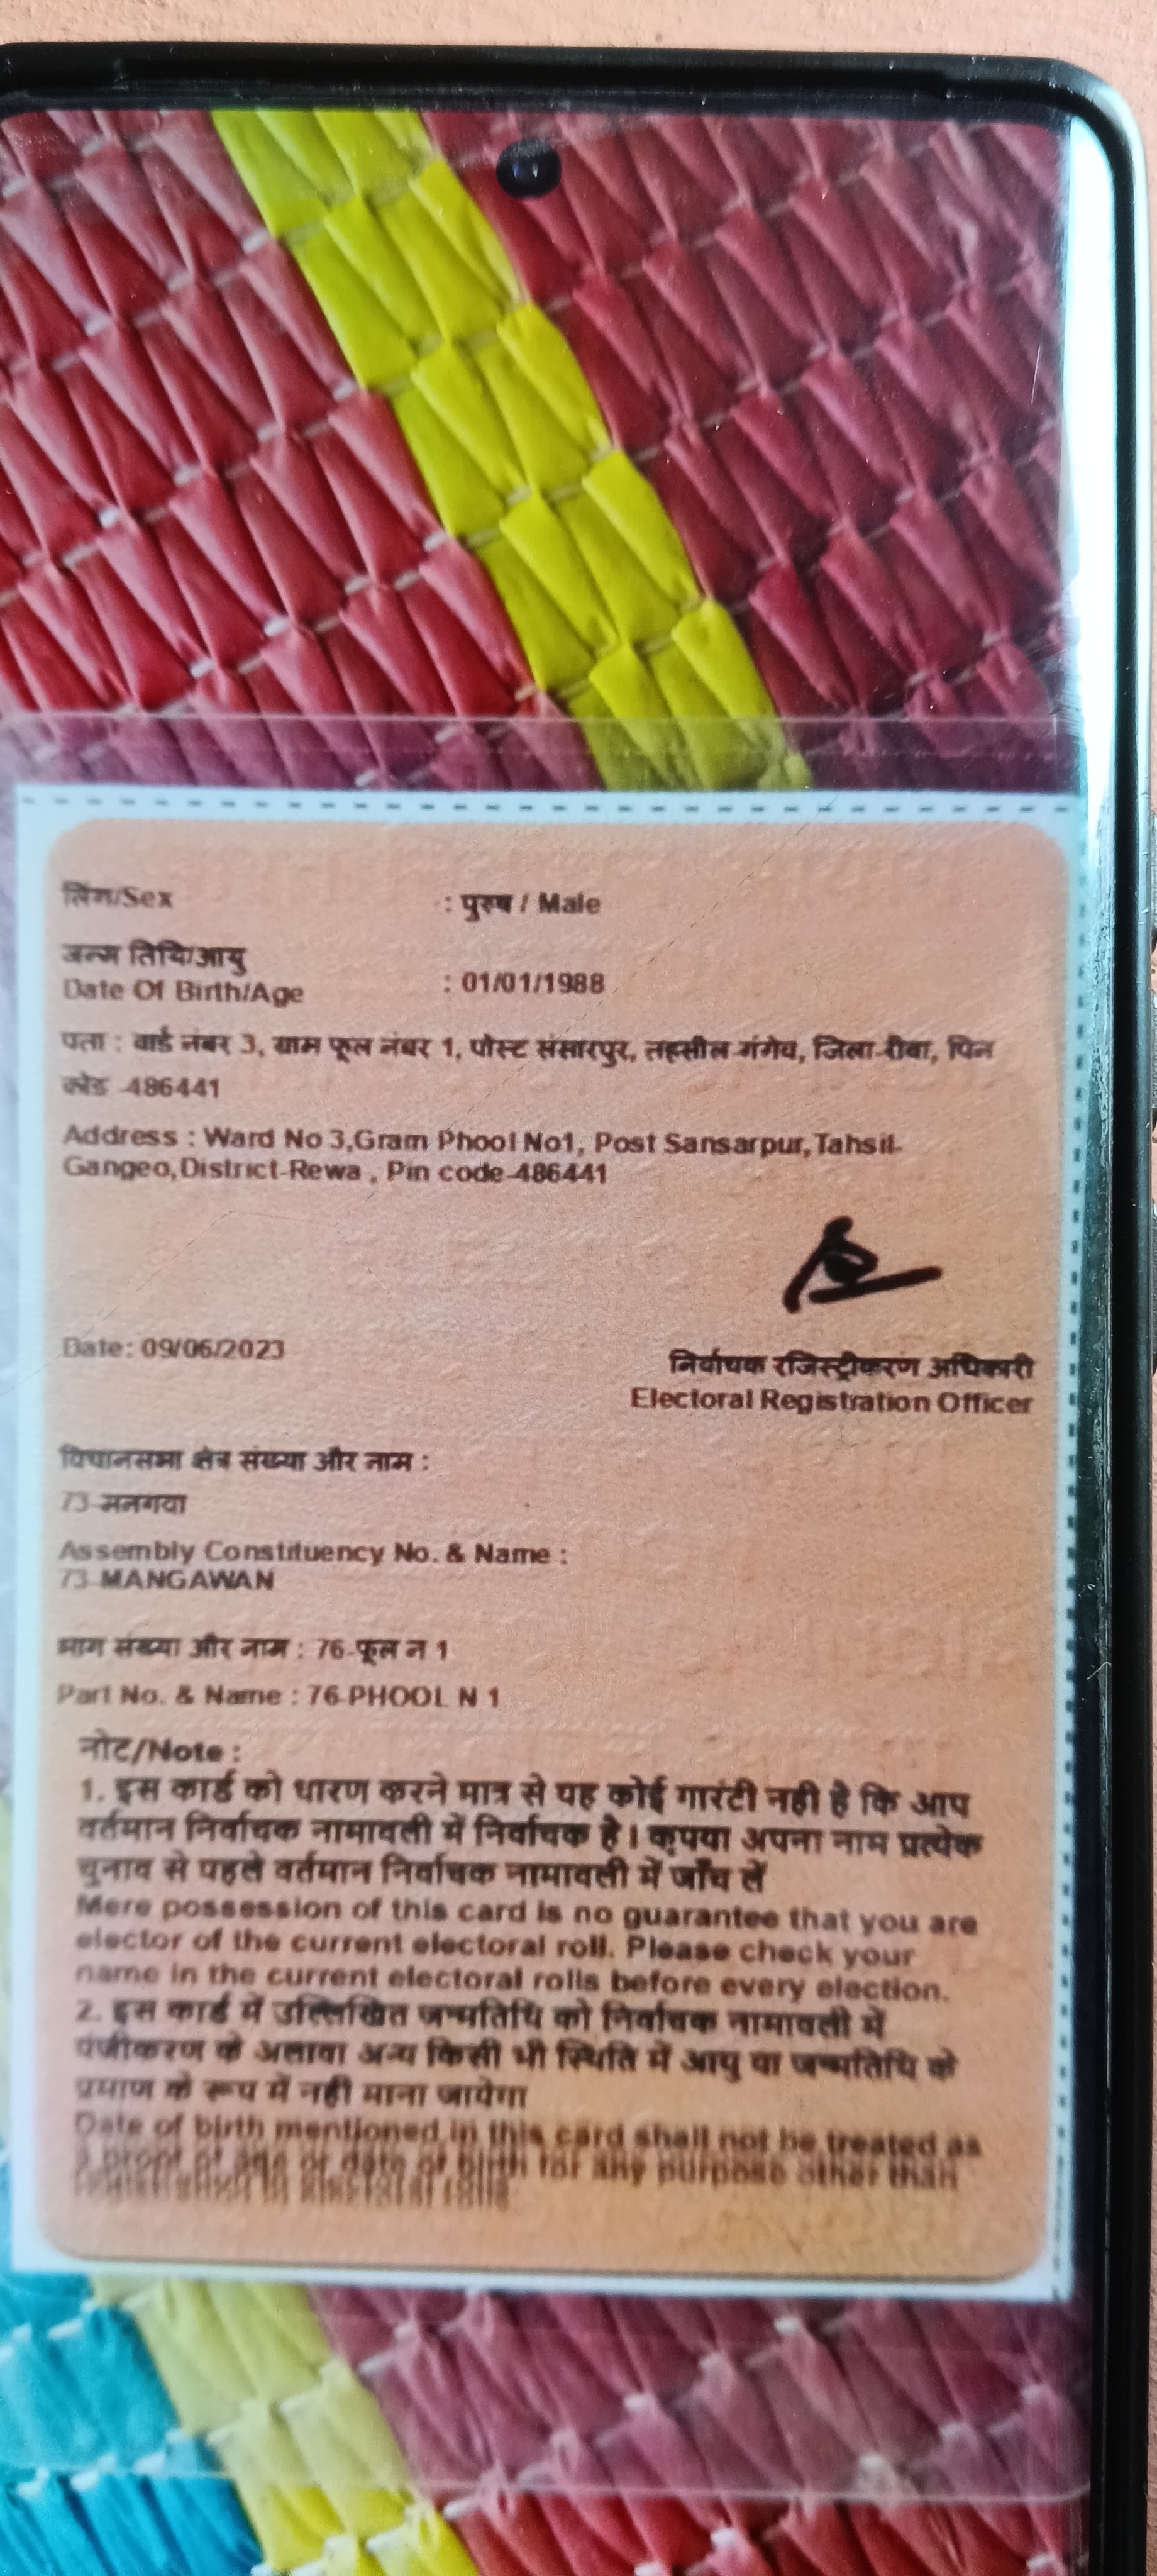 लिंग/Sex : पुरुष / Male
जन्म तिथि/आयु
Date Of Birth/Age : 01/01/1988
पता : वार्ड नंबर 3, ग्राम फूल नंबर 1, पोस्ट संसारपुर, तहसील-गंगेव, जिला-रीवा, पिन
कोड -486441
Address : Ward No 3,Gram Phool No1, Post Sansarpur,Tahsil-
Gangeo,District-Rewa , Pin code-486441
Date: 09/06/2023
निर्वाचक रजिस्ट्रीकरण अधिकारी
Electoral Registration Officer
विधानसभा क्षेत्र संख्या और नाम :
73-मनगवा
Assembly Constituency No. & Name :
73-MANGAWAN
भाग संख्या और नाम : 76-फूल न 1
Part No. & Name : 76-PHOOL N 1
नोट/Note :
1. इस कार्ड को धारण करने मात्र से यह कोई गारंटी नही है कि आप
वर्तमान निर्वाचक नामावली में निर्वाचक है। कृपया अपना नाम प्रत्येक
चुनाव से पहले वर्तमान निर्वाचक नामावली में जाँच लें
Mere possession of this card is no guarantee that you are
elector of the current electoral roll. Please check your
name in the current electoral rolls before every election.
2. इस कार्ड में उल्लिखित जन्मतिथि को निर्वाचक नामावली में
पंजीकरण के अलावा अन्य किसी भी स्थिति में आयु या जन्मतिथि के
प्रमाण के रूप में नही माना जायेगा
Date of birth mentioned in this card shall not be treated as
a proof of age or date of birth for any purpose other than
registration in electoral rolls